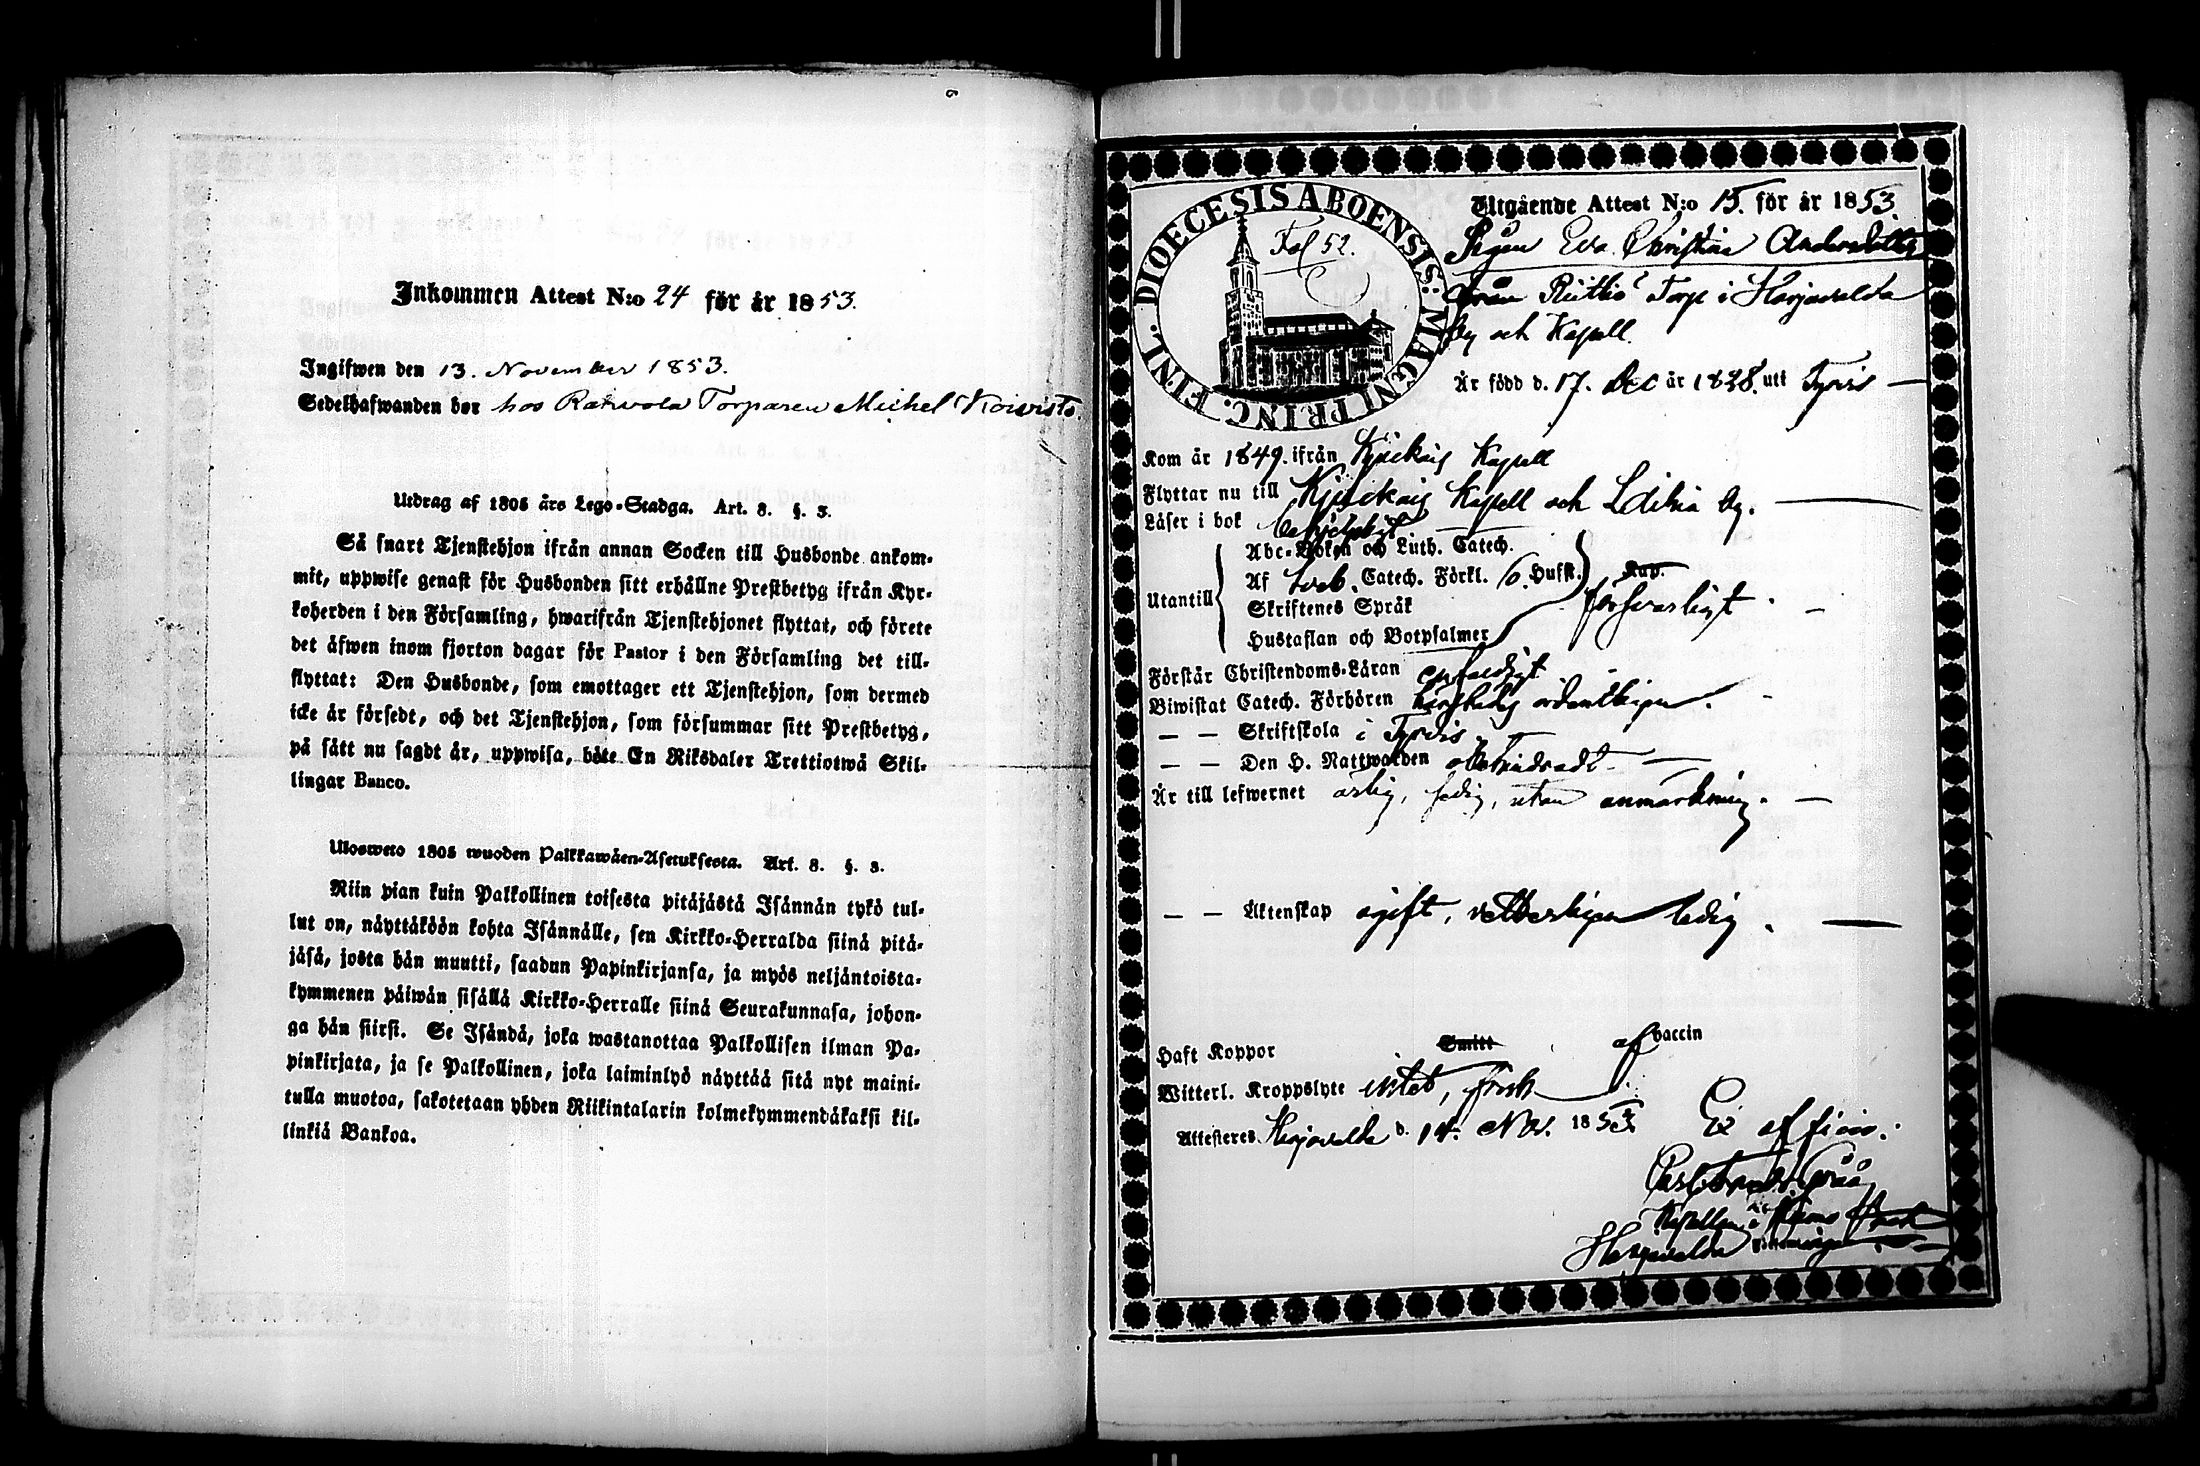 Inkommen Attest N:o 24 för år 1853.
Ingifwen den 13. November 1853.
Sedelhafwanden bor hos Rakvola Torparen Michel Koivisto.
Utdrag af 1805 års Lego-Stadga. Art. 8. §. 3.
Så snart Tjenstehjon ifrån annan Socken till Husbonde ankom-
mit, uppwise genast för Husbonden sitt erhållne Prestbetyg ifrån Kyr-
koherden i den Församling, hwarifrån Tjenstehjonet flyttat, och förete
det äfwen inom fjorton dagar för Pastor i den Församling det till-
flyttat: Den Husbonde, som emottager ett Tjenstehjon, som dermed
icke är försedt, och det Tjenstehjon, som försummar sitt Prestbetyg,
på sätt nu sagdt är, uppwisa, böte En Riksdaler Trettiotwå Skil-
lingar Banco.
Ulosweto 1805 wuoden Palkkawäen-Asetuksesta. Art. 8. §. 3.
Niin pian kuin Palkollinen toisesta pitäjästä Isännän tykö tul-
lut on, näyttäköön kohta Isännälle, sen Kirkko-Herralda siinä pitä-
jäsä, josta hän muutti, saadun Papinkirjansa, ja myös neljäntoista-
kymmenen päiwän sisällä Kirkko-Herralle siinä Seurakunnasa, johon-
ga hän siirsi. Se Isändä, joka wastanottaa Palkollisen ilman Pa-
pinkirjata, ja se Palkollinen, joka laiminlyö näyttää sitä nyt maini-
tulla muotoa, sakotetaan yhden Riikintalarin kolmekymmendäkaksi kil-
linkiä Bankoa.
DIOECESIS ABOENSIS: MAGNI PRINC. FINL.
Fol 52.
Utgående Attest N:o 15. för år 1853.
Pigan Eva Christina Andersdotter
från Torp i Harjavalda
By och Kapell.
Är född d. 17. Dec år 1828. uti Tyrvis
Kom år 1849. ifrån Kjulais Kapell
Flyttar nu till Kapell och By.
Läser i bok
Utantill
Abc-Boken och Luth. Catech.
Af Sveb. Catech. Förkl. 6. Hufst. Kap.
Skriftenes Språk försvarligt
Hustaflan och Botpsalmer
Förstår Christendoms-Läran enfaldigt
Biwistat Catech. Förhören ordentligen.
— — Skriftskola i Tyrvis
— — Den H. Nattwarden obehindradt
Är till lefwernet ärlig, ledig, utan anmärkning.
— — Äktenskap ogift, vetterligen ledig.
Haft Koppor Smitt af vaccin
Witterl. Kroppslyte intet, frisk
Attesteras Harjavalda d. 14. Nov. 1853
Ex officio:
Harjavalda